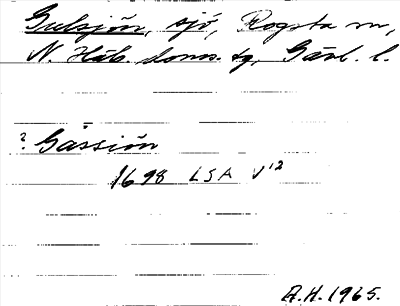 Gulsjön, sjö, Rogsta sn,
N. Häls. doms. tg, Gävl. l.
? Gåssiön
1698 LSA V12
A.H. 1965.